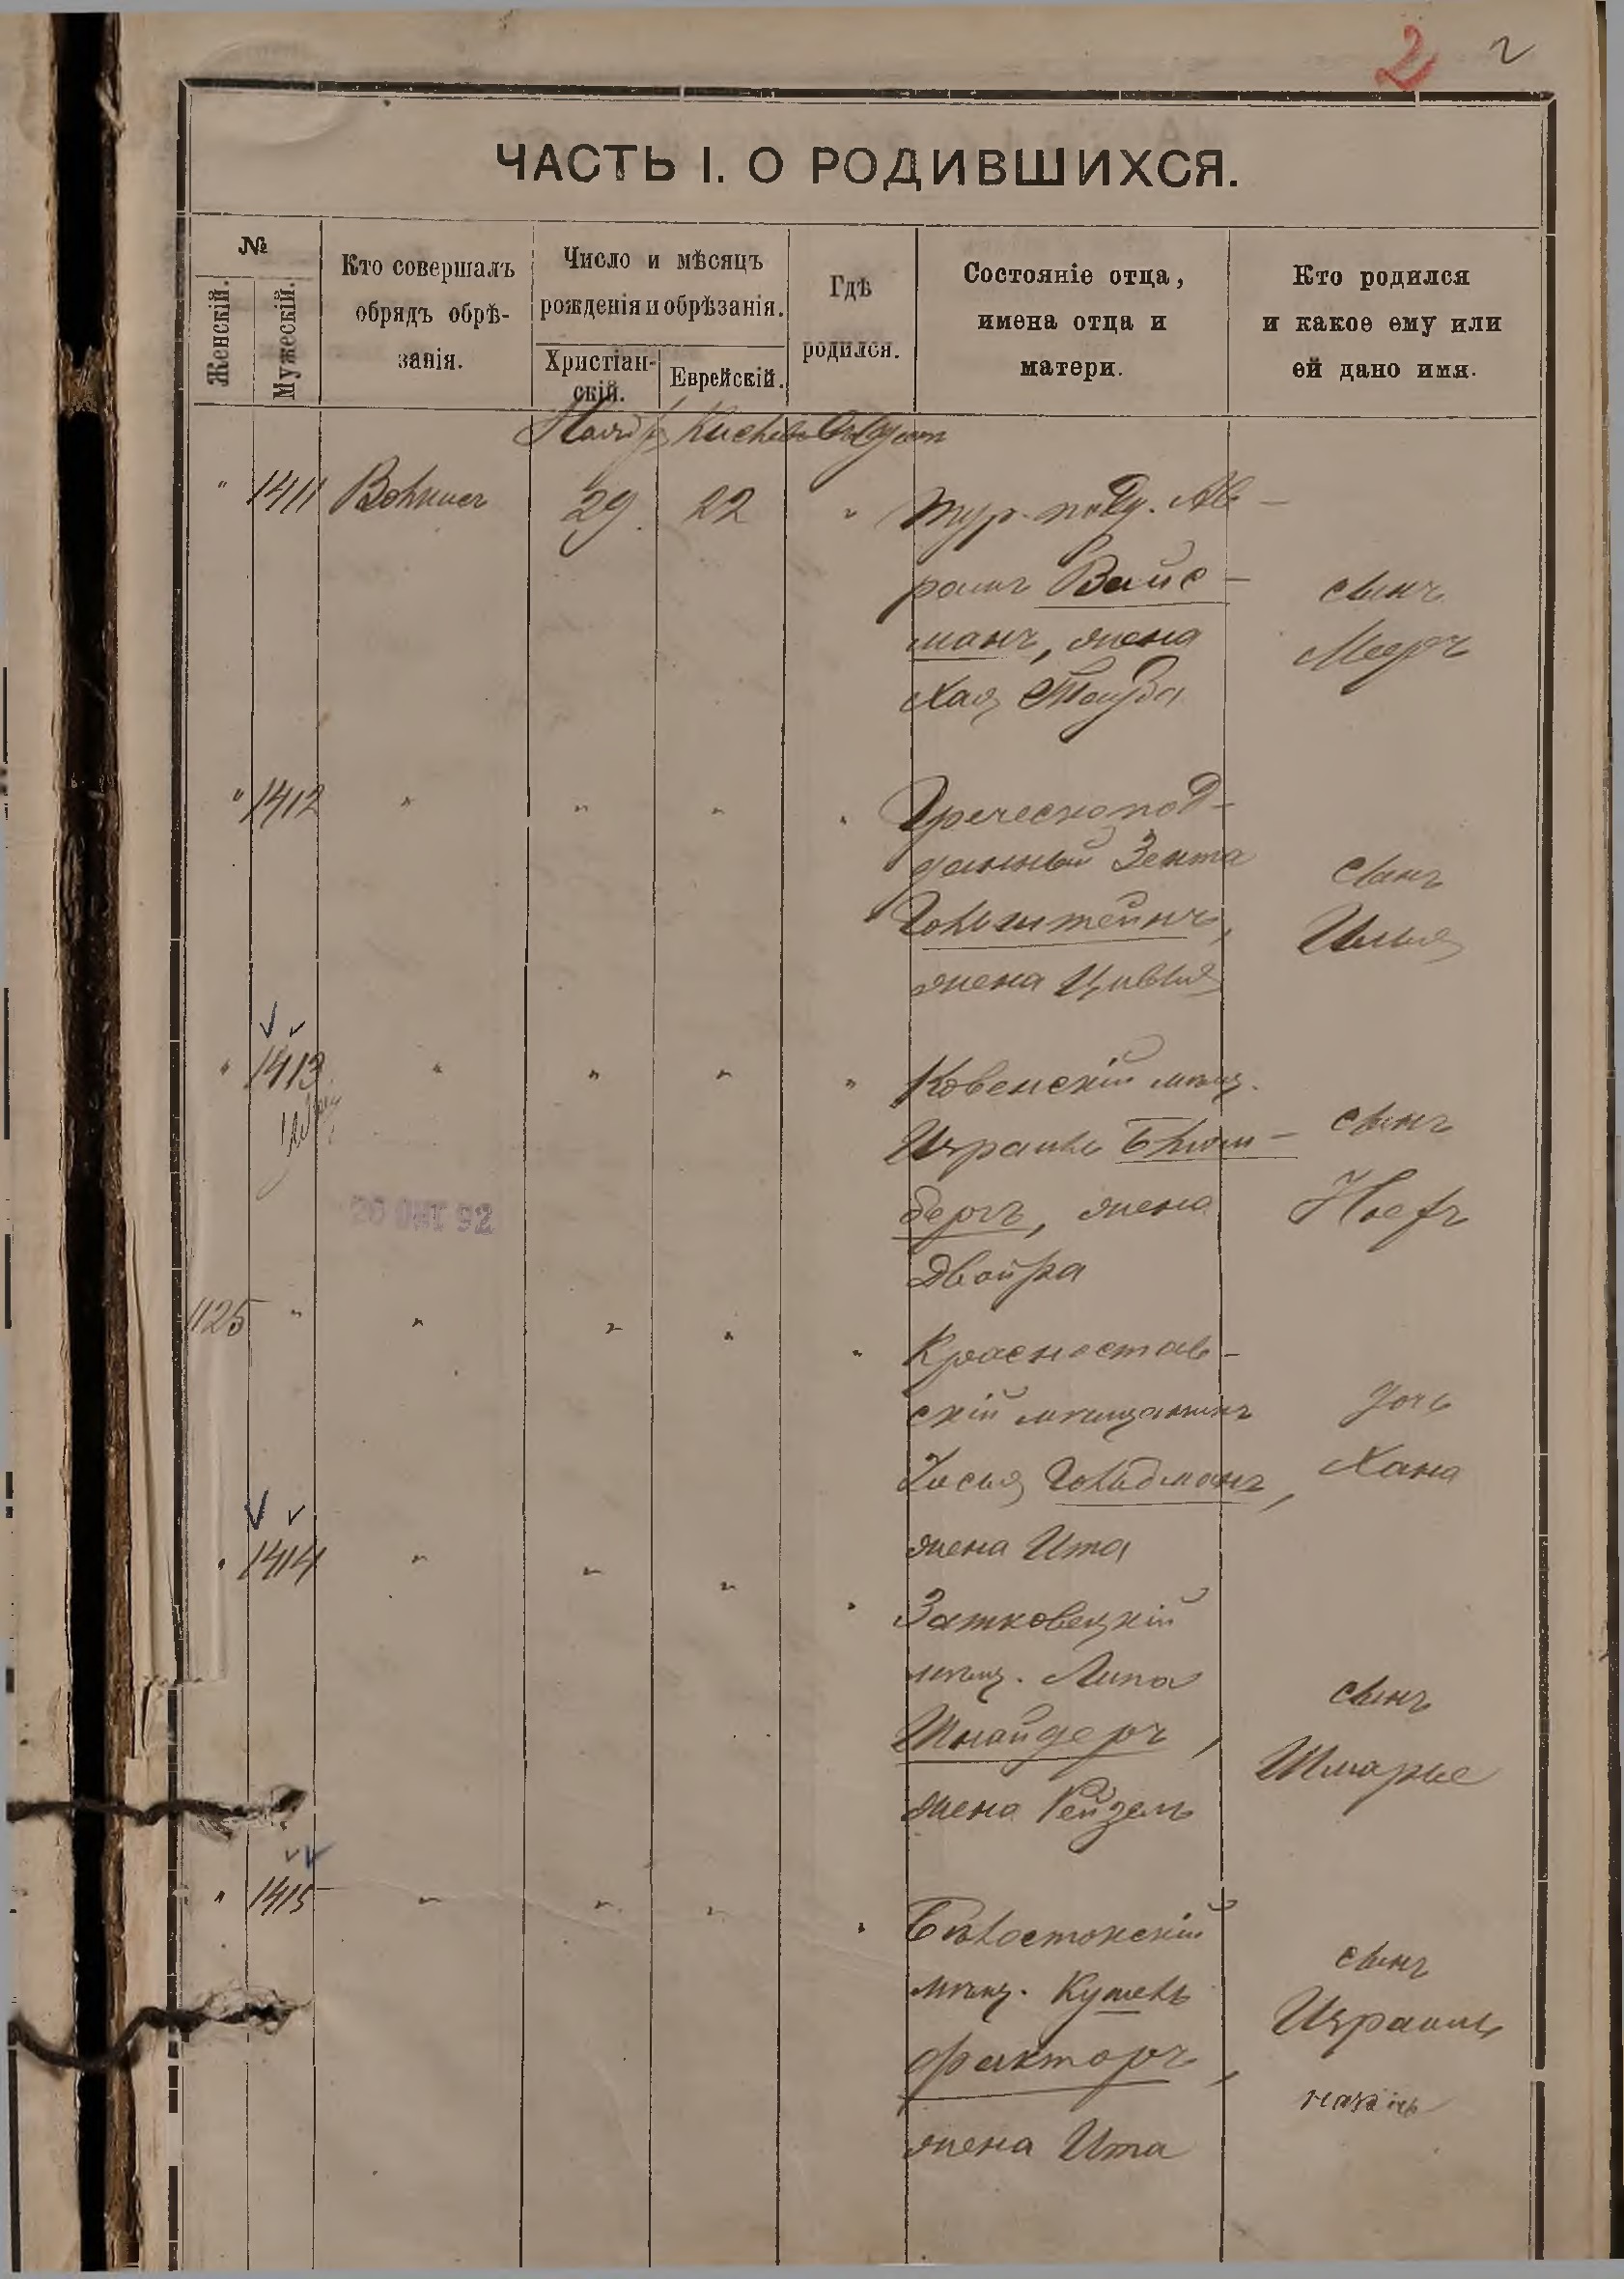 2 2
ЧАСТЬ I. О РОДИВШИХСЯ.
№
Женскій.
Мужескій.
Кто совершалъ
обрядъ обрѣ-
занія.
Число и мѣсяцъ
рожденія и обрѣзанія.
Христіан-
скій.
Еврейскій.
Гдѣ
родился.
Состояніе отца,
имена отца и
матери.
Кто родился
и какое ему или
ей дано имя.
Кто родился
" 1411 29 22 " Тур. подд. Ав-
рамъ Вайс-
манъ, жена
Хая
сынъ
Мееръ
" 1412 " " " " Греческопод-
данный
Гольштейнъ,
жена Цивья
сынъ
Илья
" 1413 " " " " Ковенскій мѣщ.
Израиль Блюм-
бергъ, жена
Двойра
сынъ
20 ОКТ 92
1125 " " " " " Красностав-
скій мѣщанинъ
Гольдманъ,
жена Ита
дочь
Хана
" 1414 " " " " Затковецкій
мѣщ. Липа
Шнайдеръ,
жена Рейзель
сынъ
Шмарье
" 1415 " " " " Бѣлостокскій
мѣщ.
Факторъ,
жена Ита
сынъ
Израиль